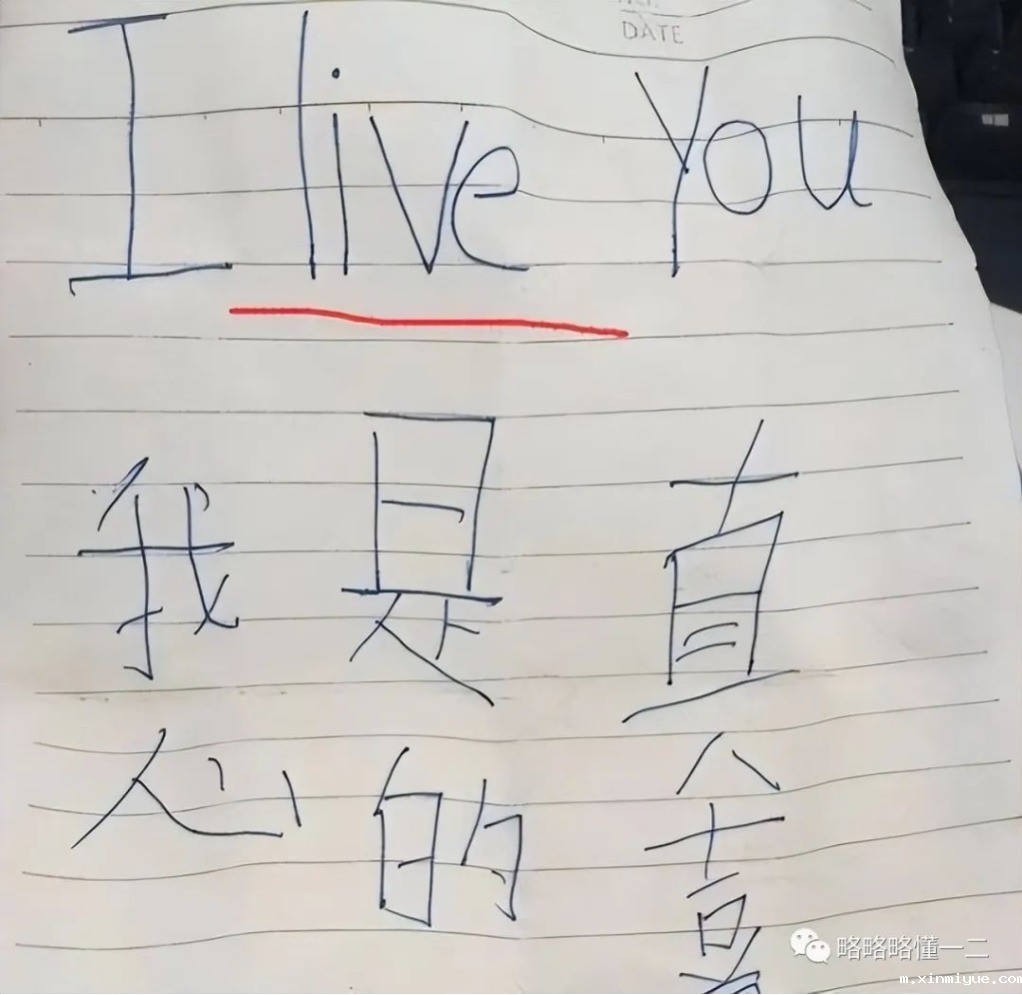 DATE
I live You
我是真
心的喜
略略略懂一二
m.xinmiyue.com